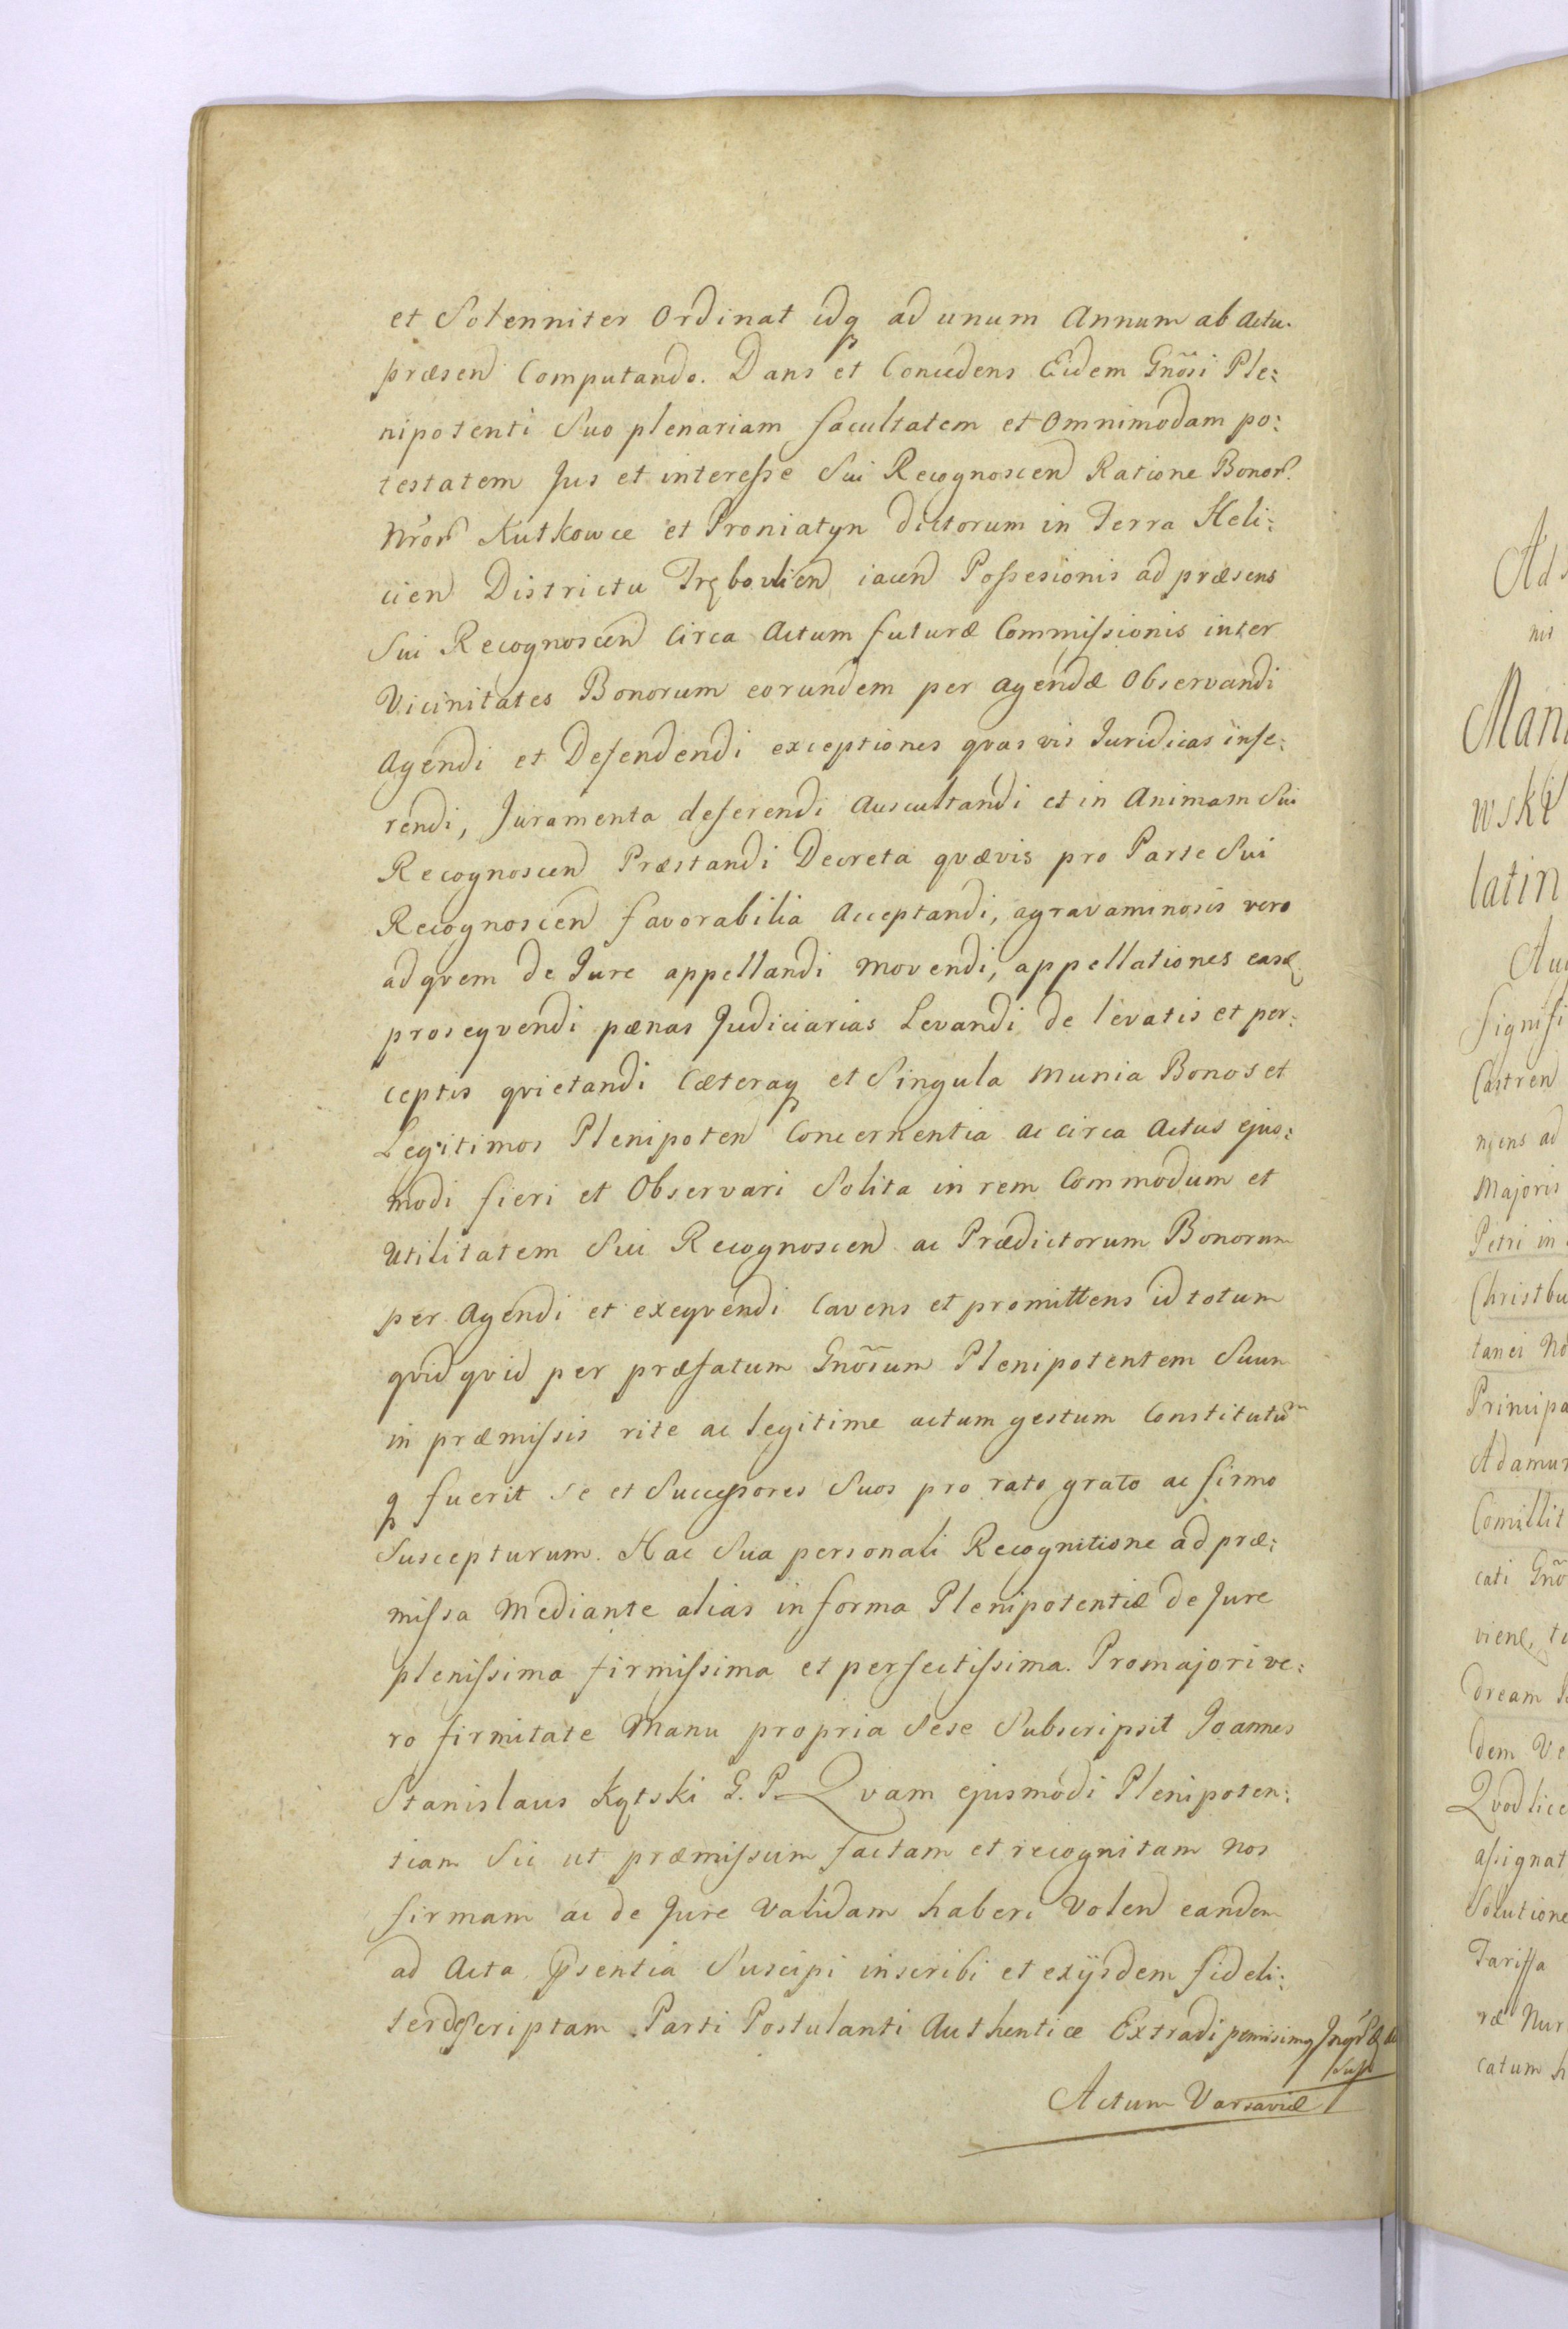 et Solenniter Ordinat idq ad unum Annum ab Actu.
præsend Computando. Dans et Concedens Eidem Gnõsi Ple:
nipotenti Suo plenariam facultatem et Omnimodam po:
testatem Jus et interesse Sui Recognoscend Ratione Bonor.
Nror Kutkowce et Proniatyn dictorum in Terra Heli:
cien Districtu Tręboulien iacend Possesionis ad præsens
Sui Recognoscend Circa Actum futuræ Commissionis inter
Vicinitates Bonorum eorundem per agendæ Observandi
Agendi et Defendendi exceptiones qvas vis Juridicas infe:
rendi, Juramenta deferendi Auscultandi et in Animam Sui
Recognoscend Præstandi Decreta qvævis pro Parte Sui
Recognoscend favorabilia Acceptandi, agravaminosis vero
ad qvem de Jure appellandi movendi, appellationes easq
proseqvendi pænas Judiciarias Levandi de levatis et per:
ceptis qvietandi Cæteraq et Singula munia Bonos et
Legitimos Plenipoten Concernentia ac circa Actus ejus:
modi fieri et Observari Solita in rem Commodum et
Utilitatem Sui Recognoscend ac Prædictorum Bonorum
per Agendi et exeqvendi Cavens et promittens id totum
qvid qvid per præfatum Gnõsum Plenipotentem Suum
in præmissis rite ac legitime actum gestum Constitutũ
q fuerit se et Successores Suos pro rato grato ac firmo
Suscepturum. Hac Sua personali Recognitione ad præ:
missa Mediante alias in forma Plenipotentiæ de Jure
plenissima firmissima et perfectissima. Pro majori ve:
ro firmitate Manu propria Sese Subscripsit Joannes
Stanislaus Kątski G. P. Qvam ejusmodi Plenipoten:
tiam Sic ut præmissum factam et recognitam nos
firmam ac de Jure Validam haberi Volend eandem
ad Acta psentia Suscipi inscribi et exijsdem fideli:
ter descriptam Parti Postulanti Authentice Extradi permisimq
Actum Varsaviæ
Mani
wski
latin
Signifi
Castren
Majoris
Petri in
Christbu
tanei No
Principa
Adamum
cati Gnõ
dream
dem Ve
Qvod lice
assignat
Solutione
Tariffa
catum h